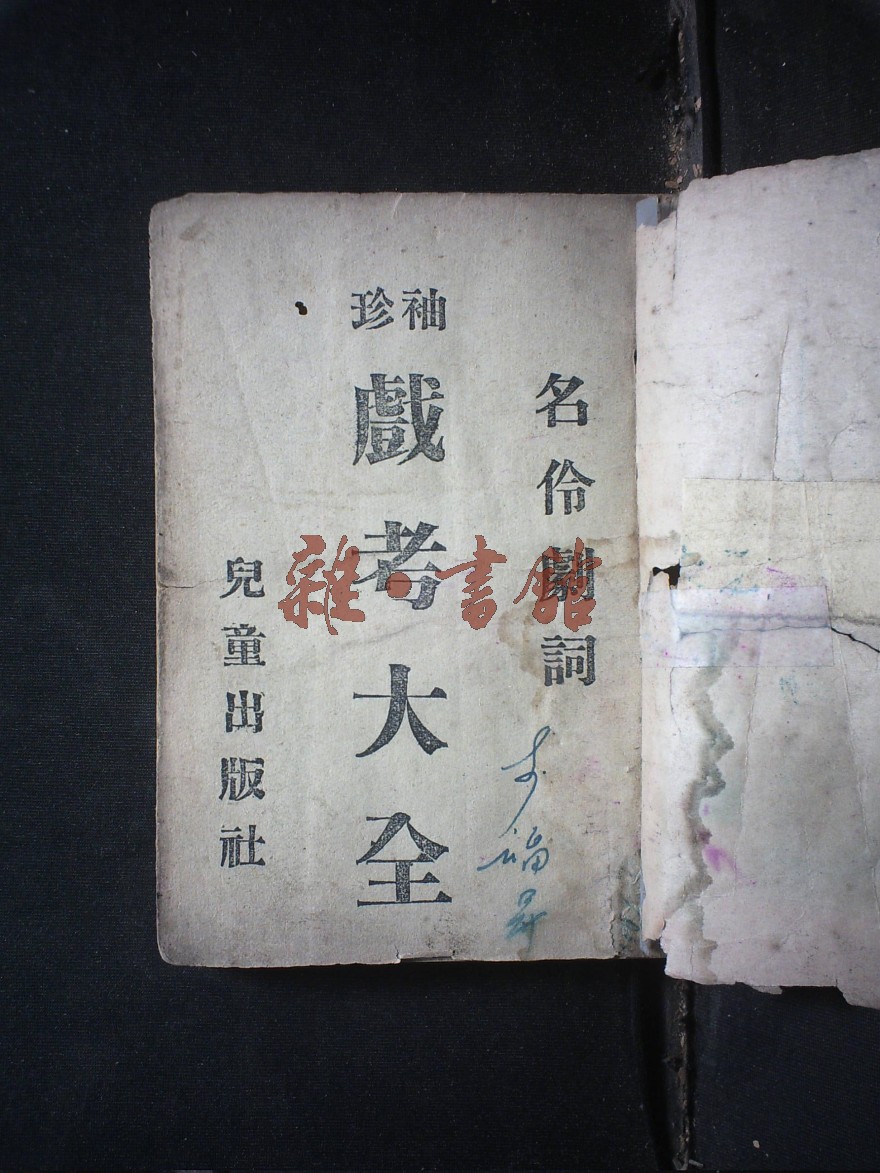 名伶劇詞
袖珍
戲考大全
兒童出版社
雜·書館